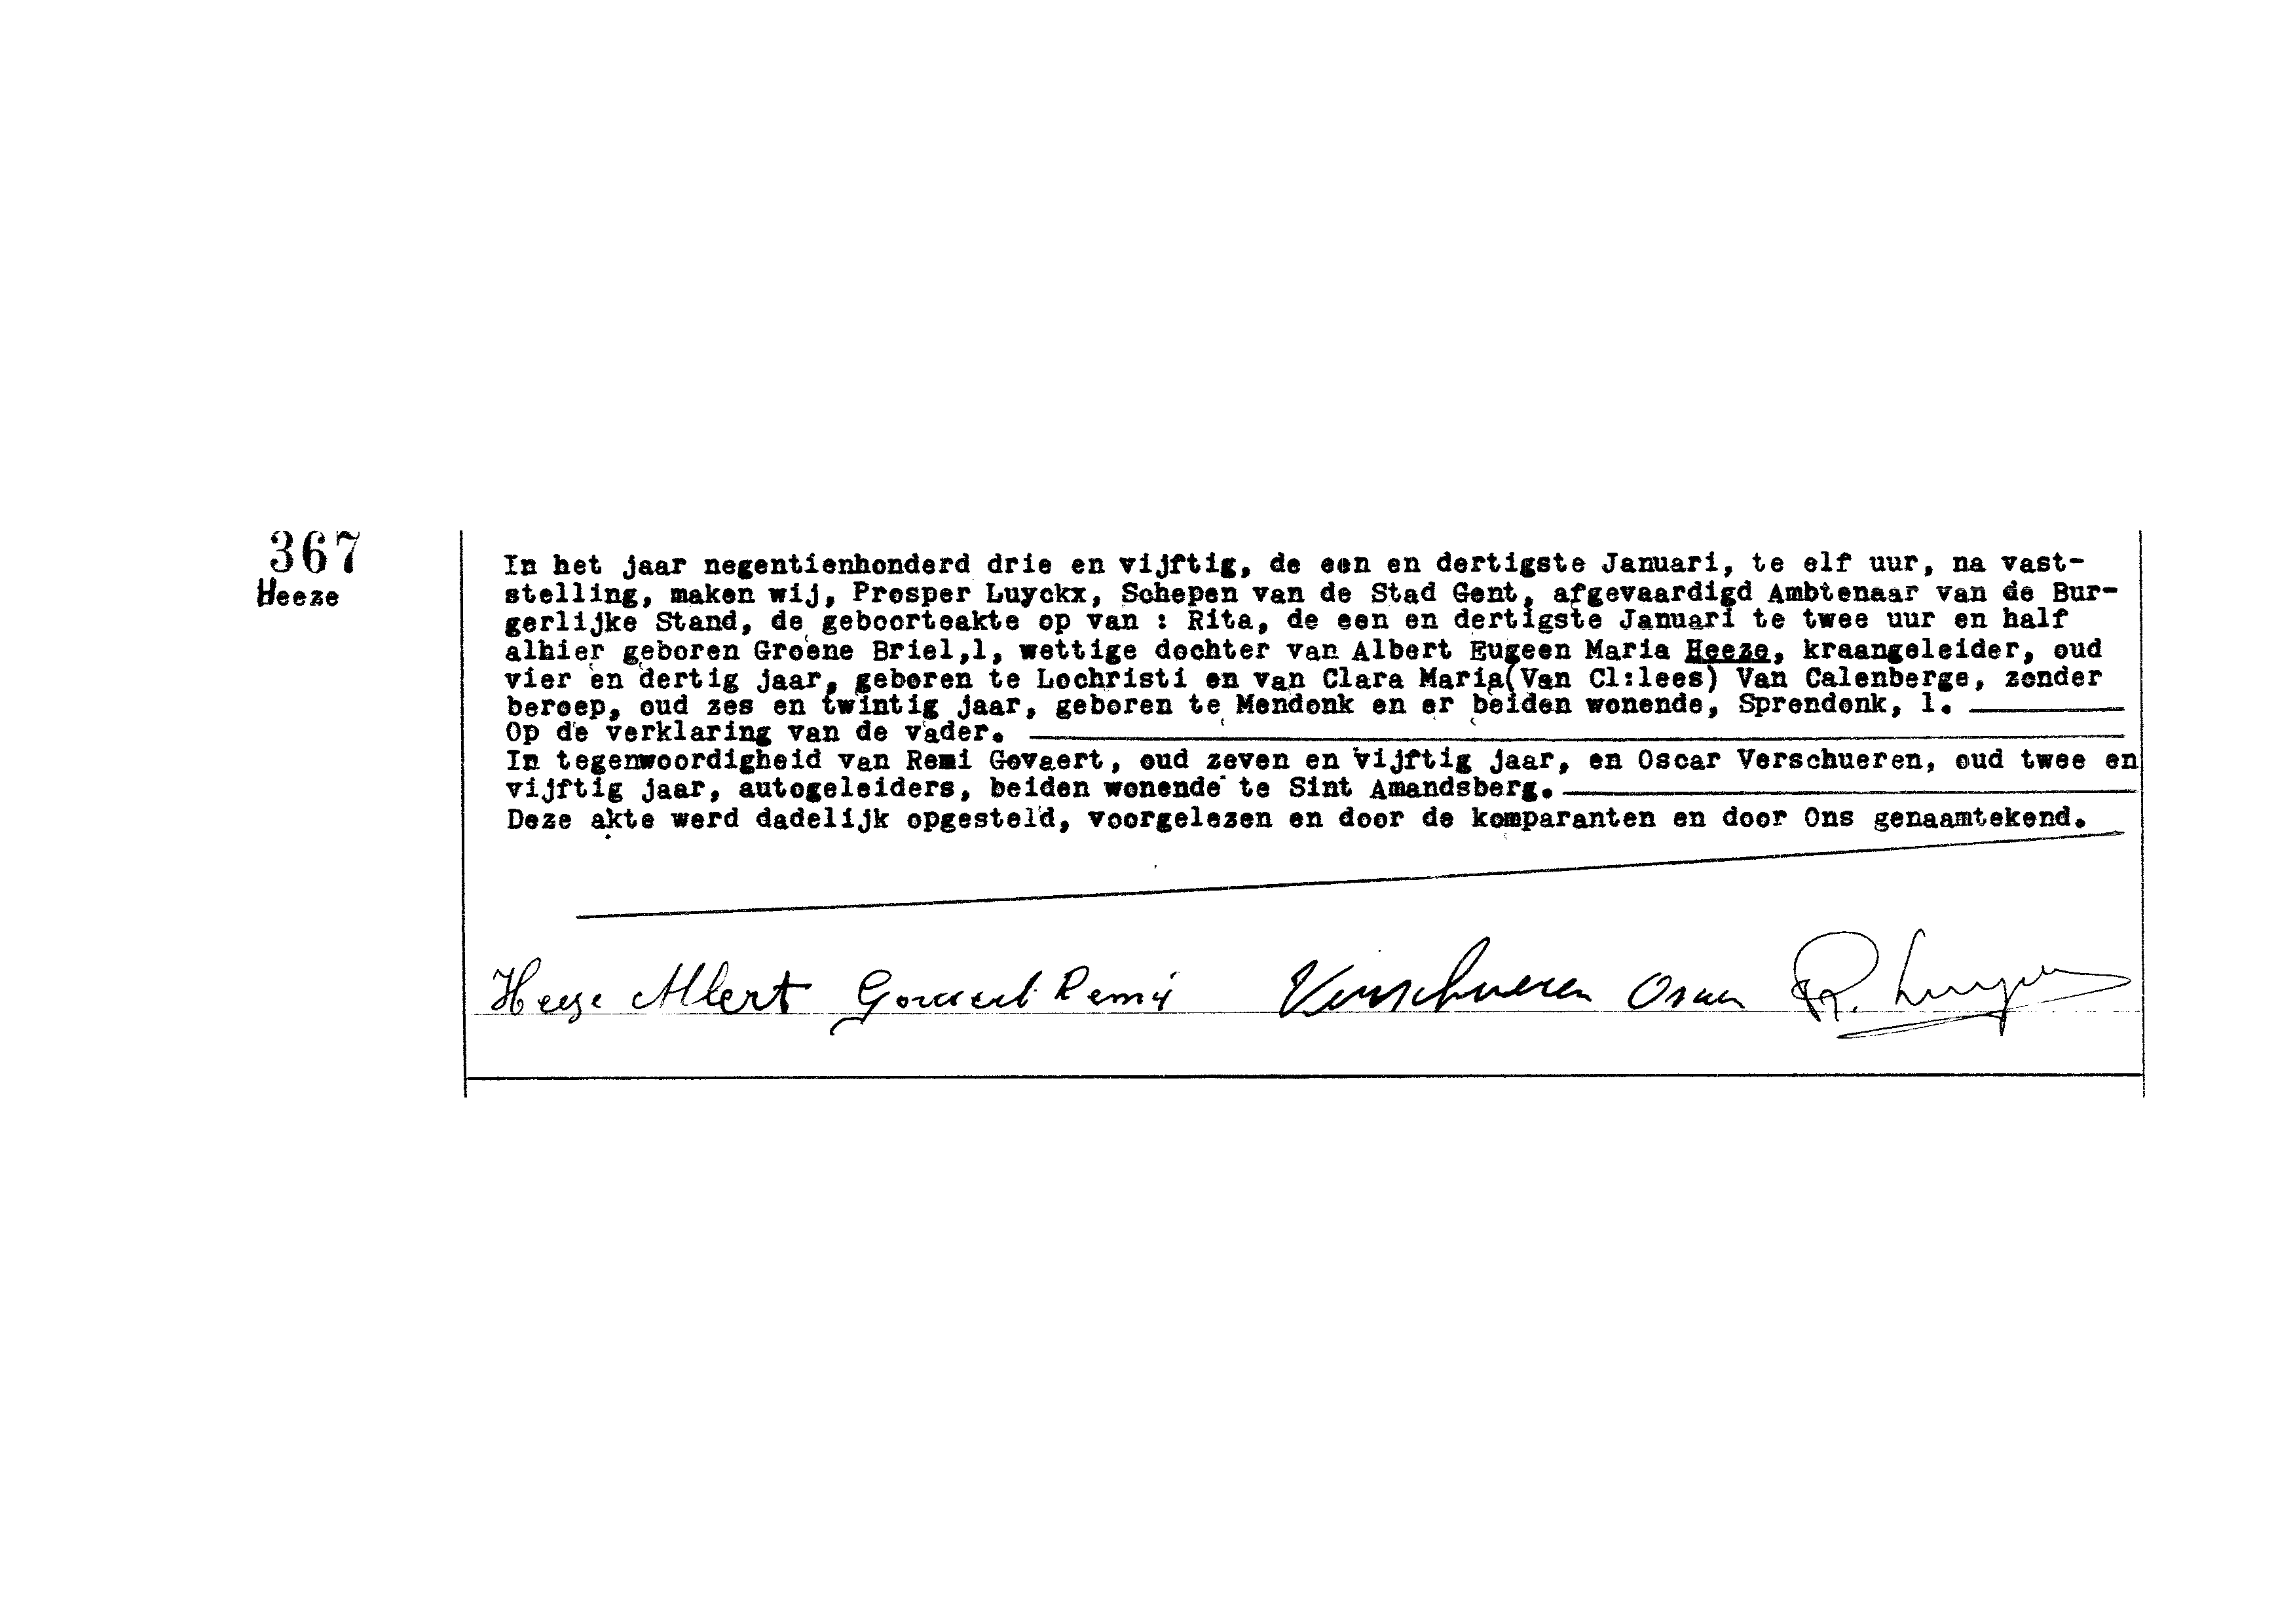 367
Heeze
In het jaar negentienhonderd drie en vijftig, de een en dertigste Januari, te elf uur, na vast-
stelling, maken wij, Prosper Luyckx, Schepen van de Stad Gent, afgevaardigd Ambtenaar van de Bur-
gerlijke Stand, de geboorteakte op van : Rita, de een en dertigste Januari te twee uur en half
alhier geboren Groene Briel,1, wettige dochter van Albert Eugeen Maria Heeze, kraangeleider, oud
vier en dertig jaar, geboren te Lochristi en van Clara Maria(Van Cl:lees) Van Calenberge, zonder
beroep, oud zes en twintig jaar, geboren te Mendonk en er beiden wonende, Sprendonk, 1.
Op de verklaring van de vader.
In tegenwoordigheid van Remi Govaert, oud zeven en vijftig jaar, en Oscar Verschueren, oud twee en
vijftig jaar, autogeleiders, beiden wonende te Sint Amandsberg.
Deze akte werd dadelijk opgesteld, voorgelezen en door de komparanten en door Ons genaamtekend.
Heeze Albert Govaert Remi Verschueren Oscar